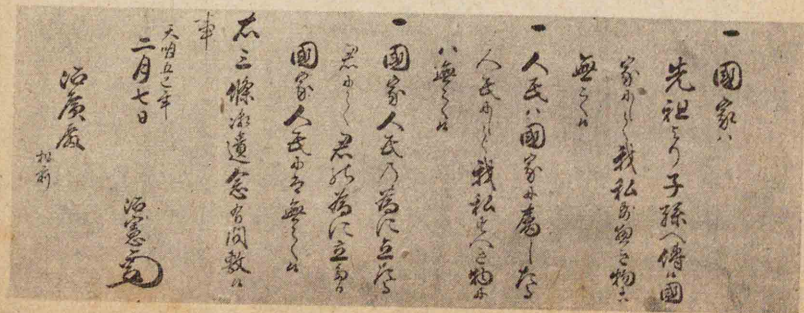 一國家ハ
先祖より子孫へ傳候國
家にして我私すへき物ニハ
無之候
一人民ハ國家に屬したる
人民にして我私すへき物に
ハ無之候
一國家人民の為に立たる
君にして君の為に立たる
國家人民にハ無之候
右三條御遺念有間敷候
事
天明五巳年
二月七日
治憲
治廣殿
机前